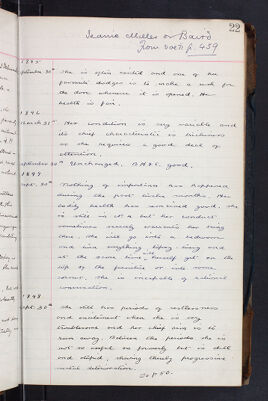 22
Jeanie Miller or Baird
from vol 71 p. 459
1895
September 30th She is often excited and one of her
favourite dodges is to make a rush for
the door whenever it is opened. Her
health is fair.
1896
March 31st Her condition is very variable and
its chief characteristic is
so she requires a good deal of
attention.
September 30th Unchanged. B.H.&c. good.
1897
Sept. 30th Nothing of importance has happened
during the past twelve months. Her
bodily health has remained good. She
is still in but her conduct
sometimes scarcely warrants her being
there. She will go into a bedroom
and have everything lying and
at the same time will herself get on the
top of the furniture or into some
corner. She is incapable of rational
conversation.
1898
Sept. 30th She still has periods of restlessness
and excitement when she is very
troublesome and her chief aim is to
run away. Between the periods she is
not so useful as formerly but is dull
and stupid, showing thereby progressive
mental deterioration.
To p 50.